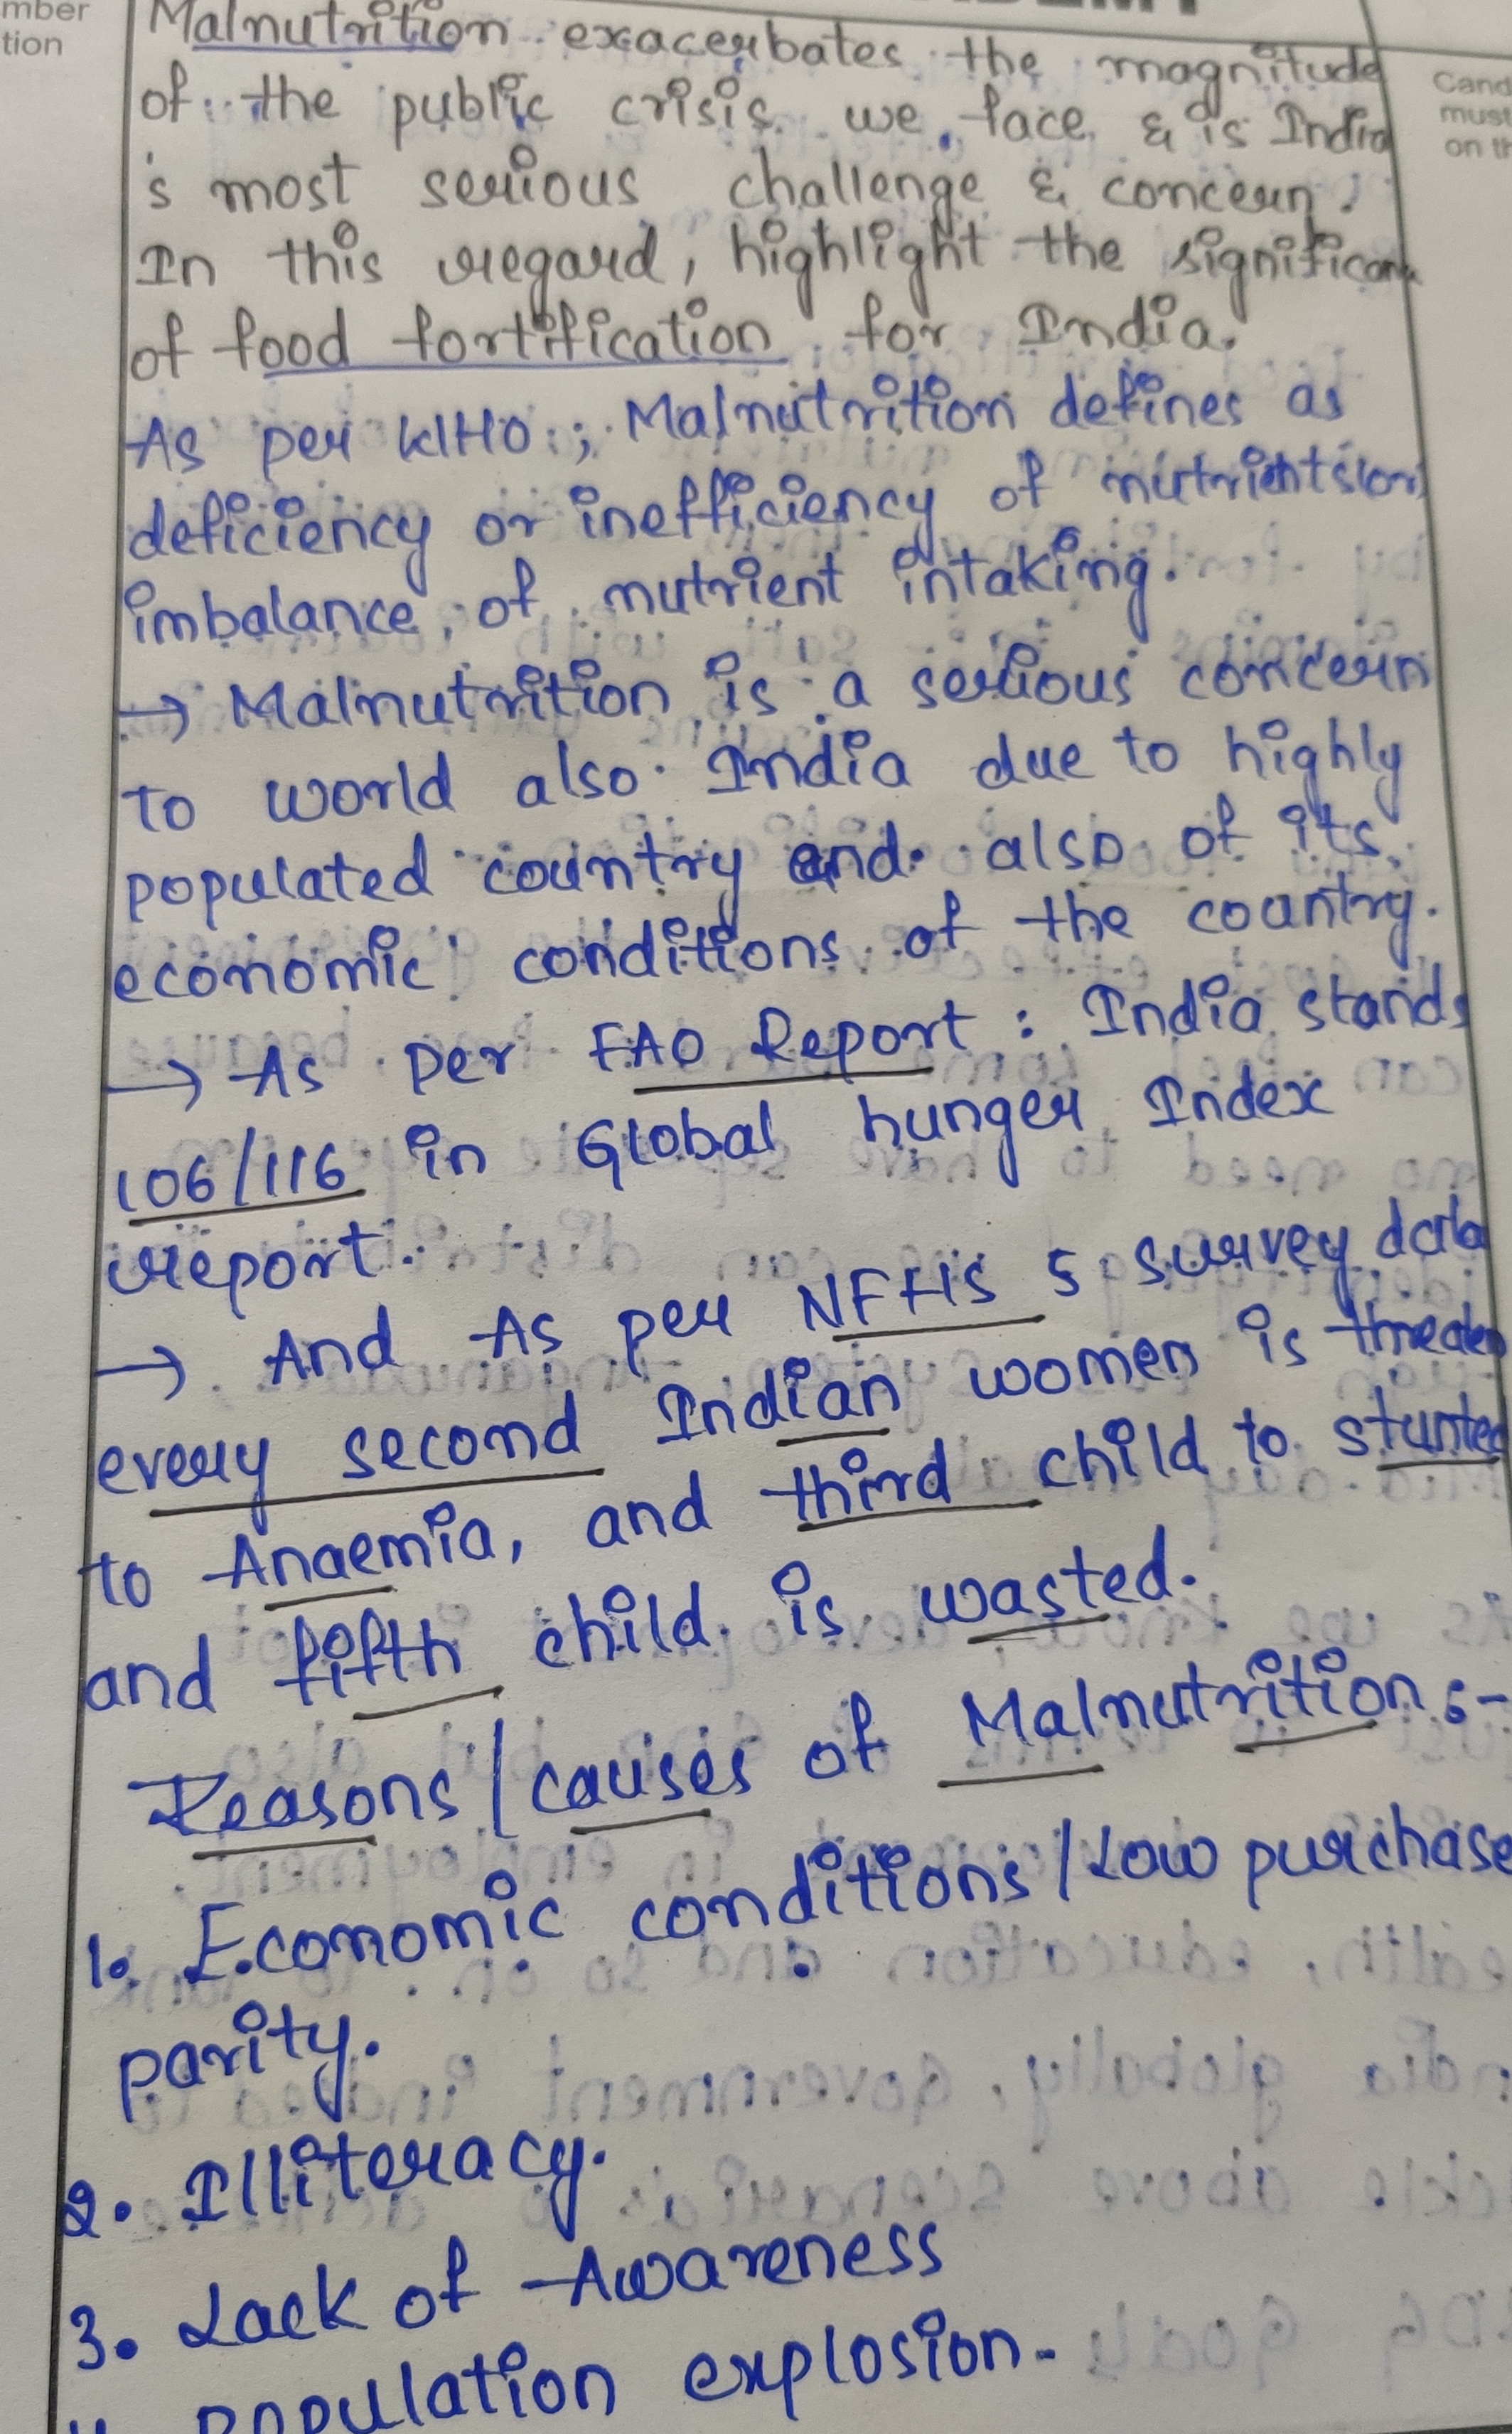 mber
tion
Cand
must
on th
Malnutrition exacerbates the magnitude
of the public crisis we face & is India
's most serious challenge & concern.
In this regard, highlight the significan
of food fortification for India.
As per WHO; Malnutrition defines as
deficiency or inefficiency of nutrients or
imbalance of nutrient intaking.
→ Malnutrition is a serious concern
to world also India due to highly
populated country and also of its
economic conditions of the country.
→ As per FAO Report : India stands
106/116 in Global hunger Index
report.
→ And As per NFHS 5 survey data
every second Indian women is threaten
to Anaemia, and third child to stunted
and fifth child is wasted.
Reasons/causes of Malnutrition :-
1. Economic conditions/Low purchase
parity.
2. Illiteracy.
3. Lack of Awareness
4. population explosion.